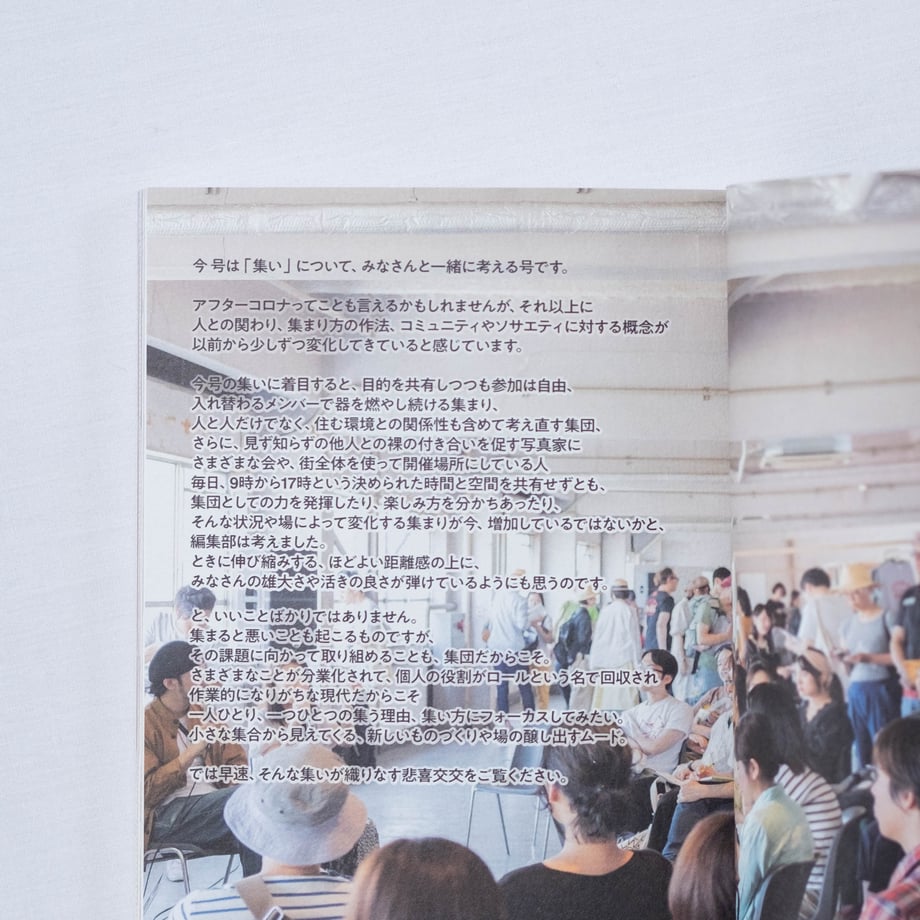 今号は「集い」について、みなさんと一緒に考える号です。
アフターコロナってことも言えるかもしれませんが、それ以上に
人との関わり、集まり方の作法、コミュニティやソサエティに対する概念が
以前から少しずつ変化してきていると感じています。
今号の集いに着目すると、目的を共有しつつも参加は自由、
入れ替わるメンバーで器を燃やし続ける集まり、
人と人だけでなく、住む環境との関係性も含めて考え直す集団、
さらに、見ず知らずの他人との裸の付き合いを促す写真家に
さまざまな会や、街全体を使って開催場所にしている人
毎日、9時から17時という決められた時間と空間を共有せずとも、
集団としての力を発揮したり、楽しみ方を分かちあったり、
そんな状況や場によって変化する集まりが今、増加しているではないかと、
編集部は考えました。
ときに伸び縮みする、ほどよい距離感の上に、
みなさんの雄大さや活きの良さが弾けているようにも思うのです。
と、いいことばかりではありません。
集まると悪いことも起こるものですが、
その課題に向かって取り組めることも、集団だからこそ。
さまざまなことが分業化されて、個人の役割がロールという名で回収され
作業的になりがちな現代だからこそ
一人ひとり、一つひとつの集う理由、集い方にフォーカスしてみたい。
小さな集合から見えてくる、新しいものづくりや場の醸し出すムード。
では早速、そんな集いが織りなす悲喜交交をご覧ください。